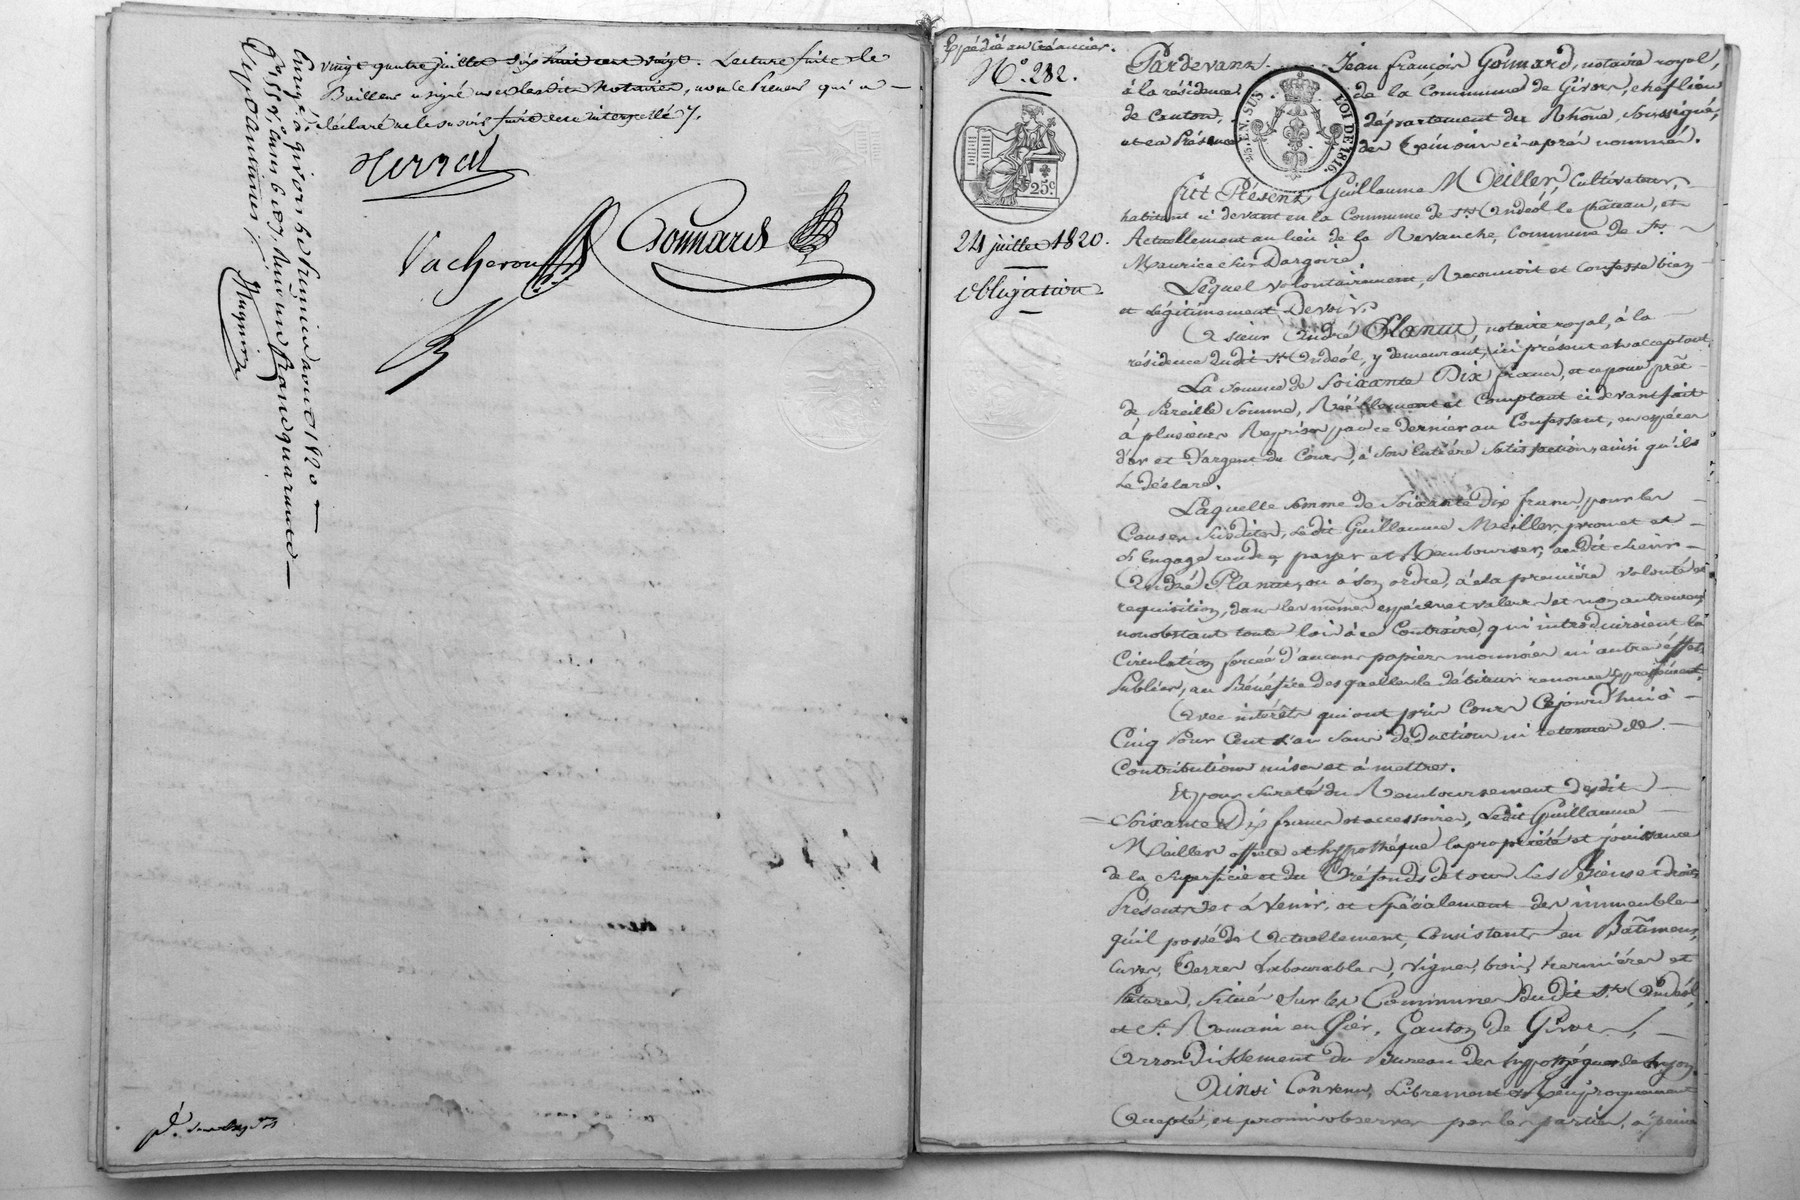 vingt quatre juillet dix huit cent vingt. Lecture faite le
Bailleur a signé avec lesdits Notaires, non le Preneur qui a
déclaré ne le savoir faire de ce interpellé
Vacheron
Gonnard
Enregé à givors le premier août 1820
deux francs quarante
Expédié au Créancier.
N.º 282.
25c.
24 juillet 1820.
Obligation
EN SUS LOI DE 1816.
Pardevant Jean françois Gonnard, notaire royal,
à la résidence de la Commune de Givors, chef lieu
de Canton, département du Rhône, soussigné,
et en Présence des témoins ci après nommés.
fut Présent Guillaume Meiller, Cultivateur,
habitant ci devant en la Commune de St. Andéol le château, et
Actuellement au lieu de la Revanche, Commune de St.
Maurice sur Dargoire,
Lequel volontairement, Reconnoit et confesse bien
et légitimement Devoir.
A sieur André Planut, notaire royal, à la
résidence dudit St. Andéol, y demeurant, ici présent et acceptant
La somme de soixante Dix francs, et ce pour prêt
de Pareille Somme, Réellement et Comptant ci devant fait
à plusieurs Reprises par ce dernier au Confessant, en espèces
d'or et d'argent du Cours, à son entière satisfaction, ainsi qu'il
le déclare.
Laquelle somme de Soixante Dix francs, pour les
Causes Susdites, ledit Guillaume Meiller promet et
s'Engage rendre, payer et Rembourser, audit sieur
André Planut, ou à son ordre, à sa première volonté et
requisition, dans les mêmes espèces et valeurs et non autrement,
nonobstant toutes lois à ce Contraire, qui introduiroient la
Circulation forcée d'aucuns papiers monnoies ni autres effets
Publics, au Bénéfice desquelles le débiteur renonce expressément
Avec intérêts qui ont pris Cours Cejourd'hui à
Cinq Pour Cent l'an sans déduction ni retenue de
Contributions mises et à mettre.
Et pour sureté du Remboursement desdits
Soixante Dix francs et accessoires, Ledit Guillaume
Meiller affecte et hypothéque la propriété et jouissance
de la Superficie et du Tréfonds de tous Ses Biens et droits
Présents et à Venir, et Spécialement des immeubles
qu'il possède Actuellement, Consistants en Bâtimens,
Cuves, Terres Labourables, vignes, bois, hermières et
Patures, Situés sur les Communes dudit St. Andéol
et St. Romain en Gier, Canton de Givors,
Arrondissement du Bureau des hypothéques de Lyon.
Ainsi Convenu, Librement et Réciproquement
Accepté, et promis observer par les parties, à peine